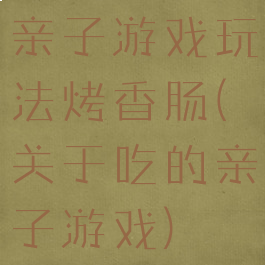 亲子游戏玩
法烤香肠(
关于吃的亲
子游戏)